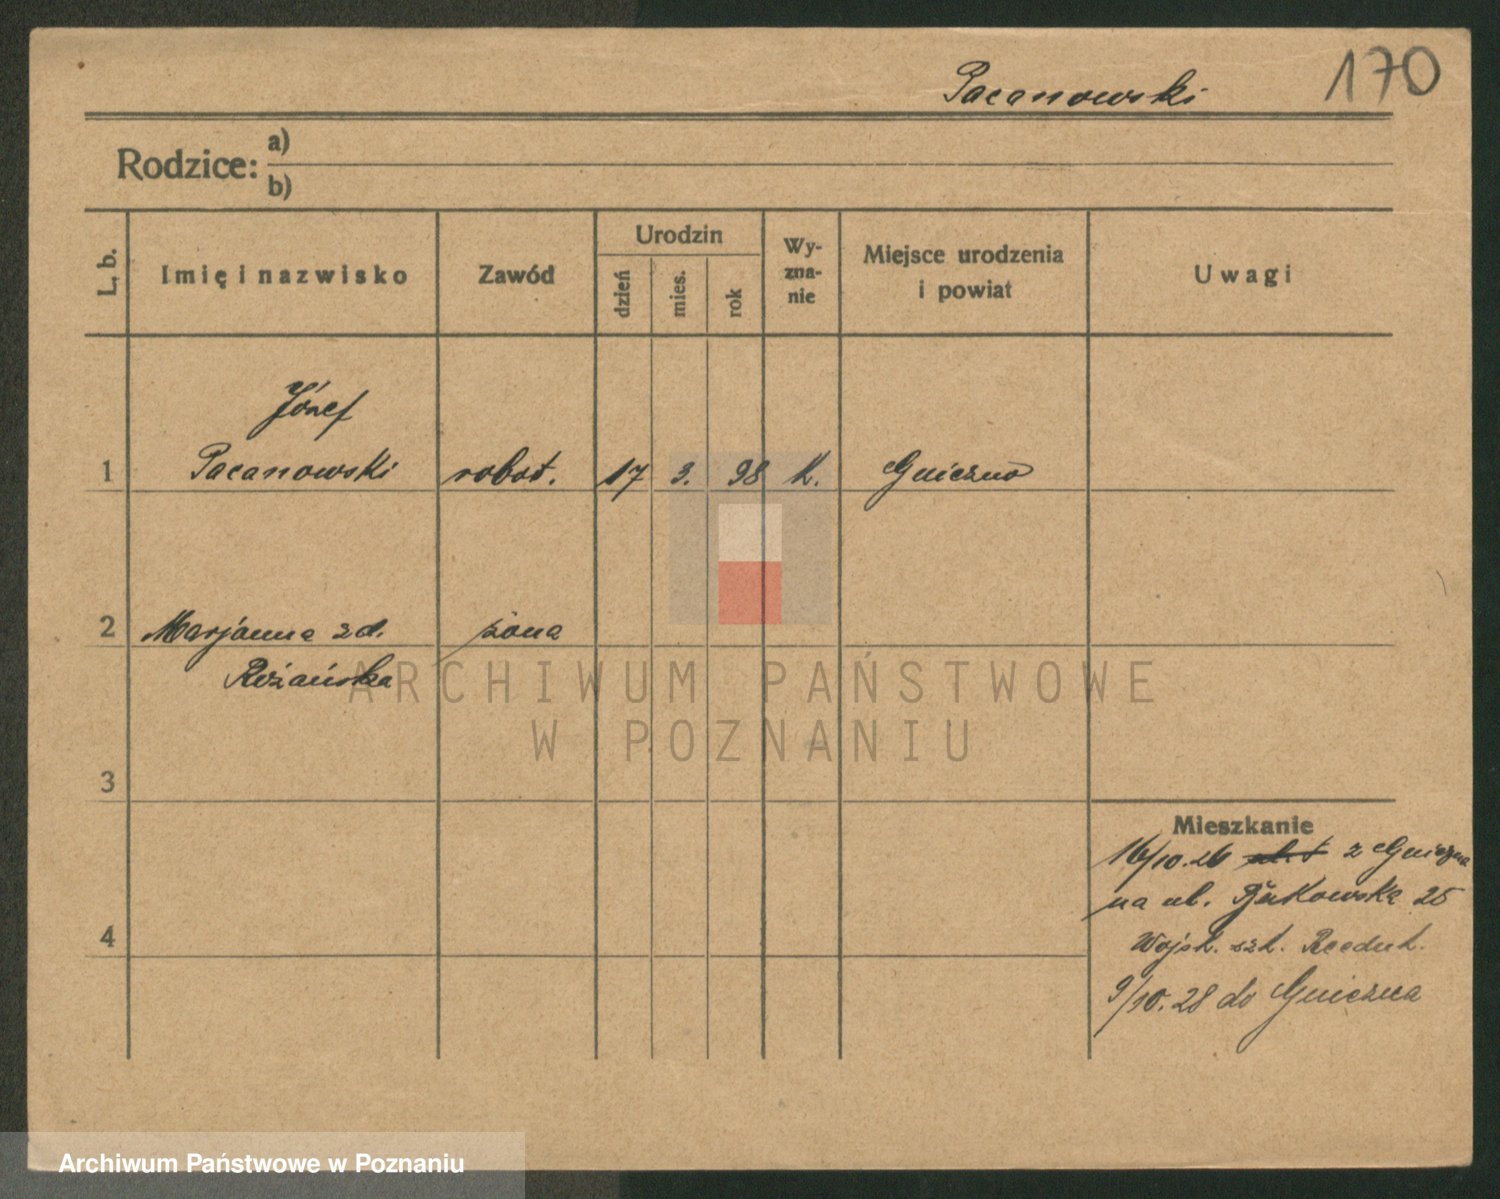 170
Pacanowski
Rodzice: a)
b)
L. b.
Imię i nazwisko
Zawód
Urodzin
dzień
mies.
rok
Wy-
zna-
nie
Miejsce urodzenia
i powiat
Uwagi
Józef
1 Pacanowski robot. 17 3. 98 k. Gniezno
2 Marjanna zd. żona
Różańska
3
4
Mieszkanie
16/10.26 z Gniezna
na ul. Bukowską 25
Wojsk. szk. Reeduk.
9/10.28 do Gniezna
ARCHIWUM PAŃSTWOWE
W POZNANIU
Archiwum Państwowe w Poznaniu